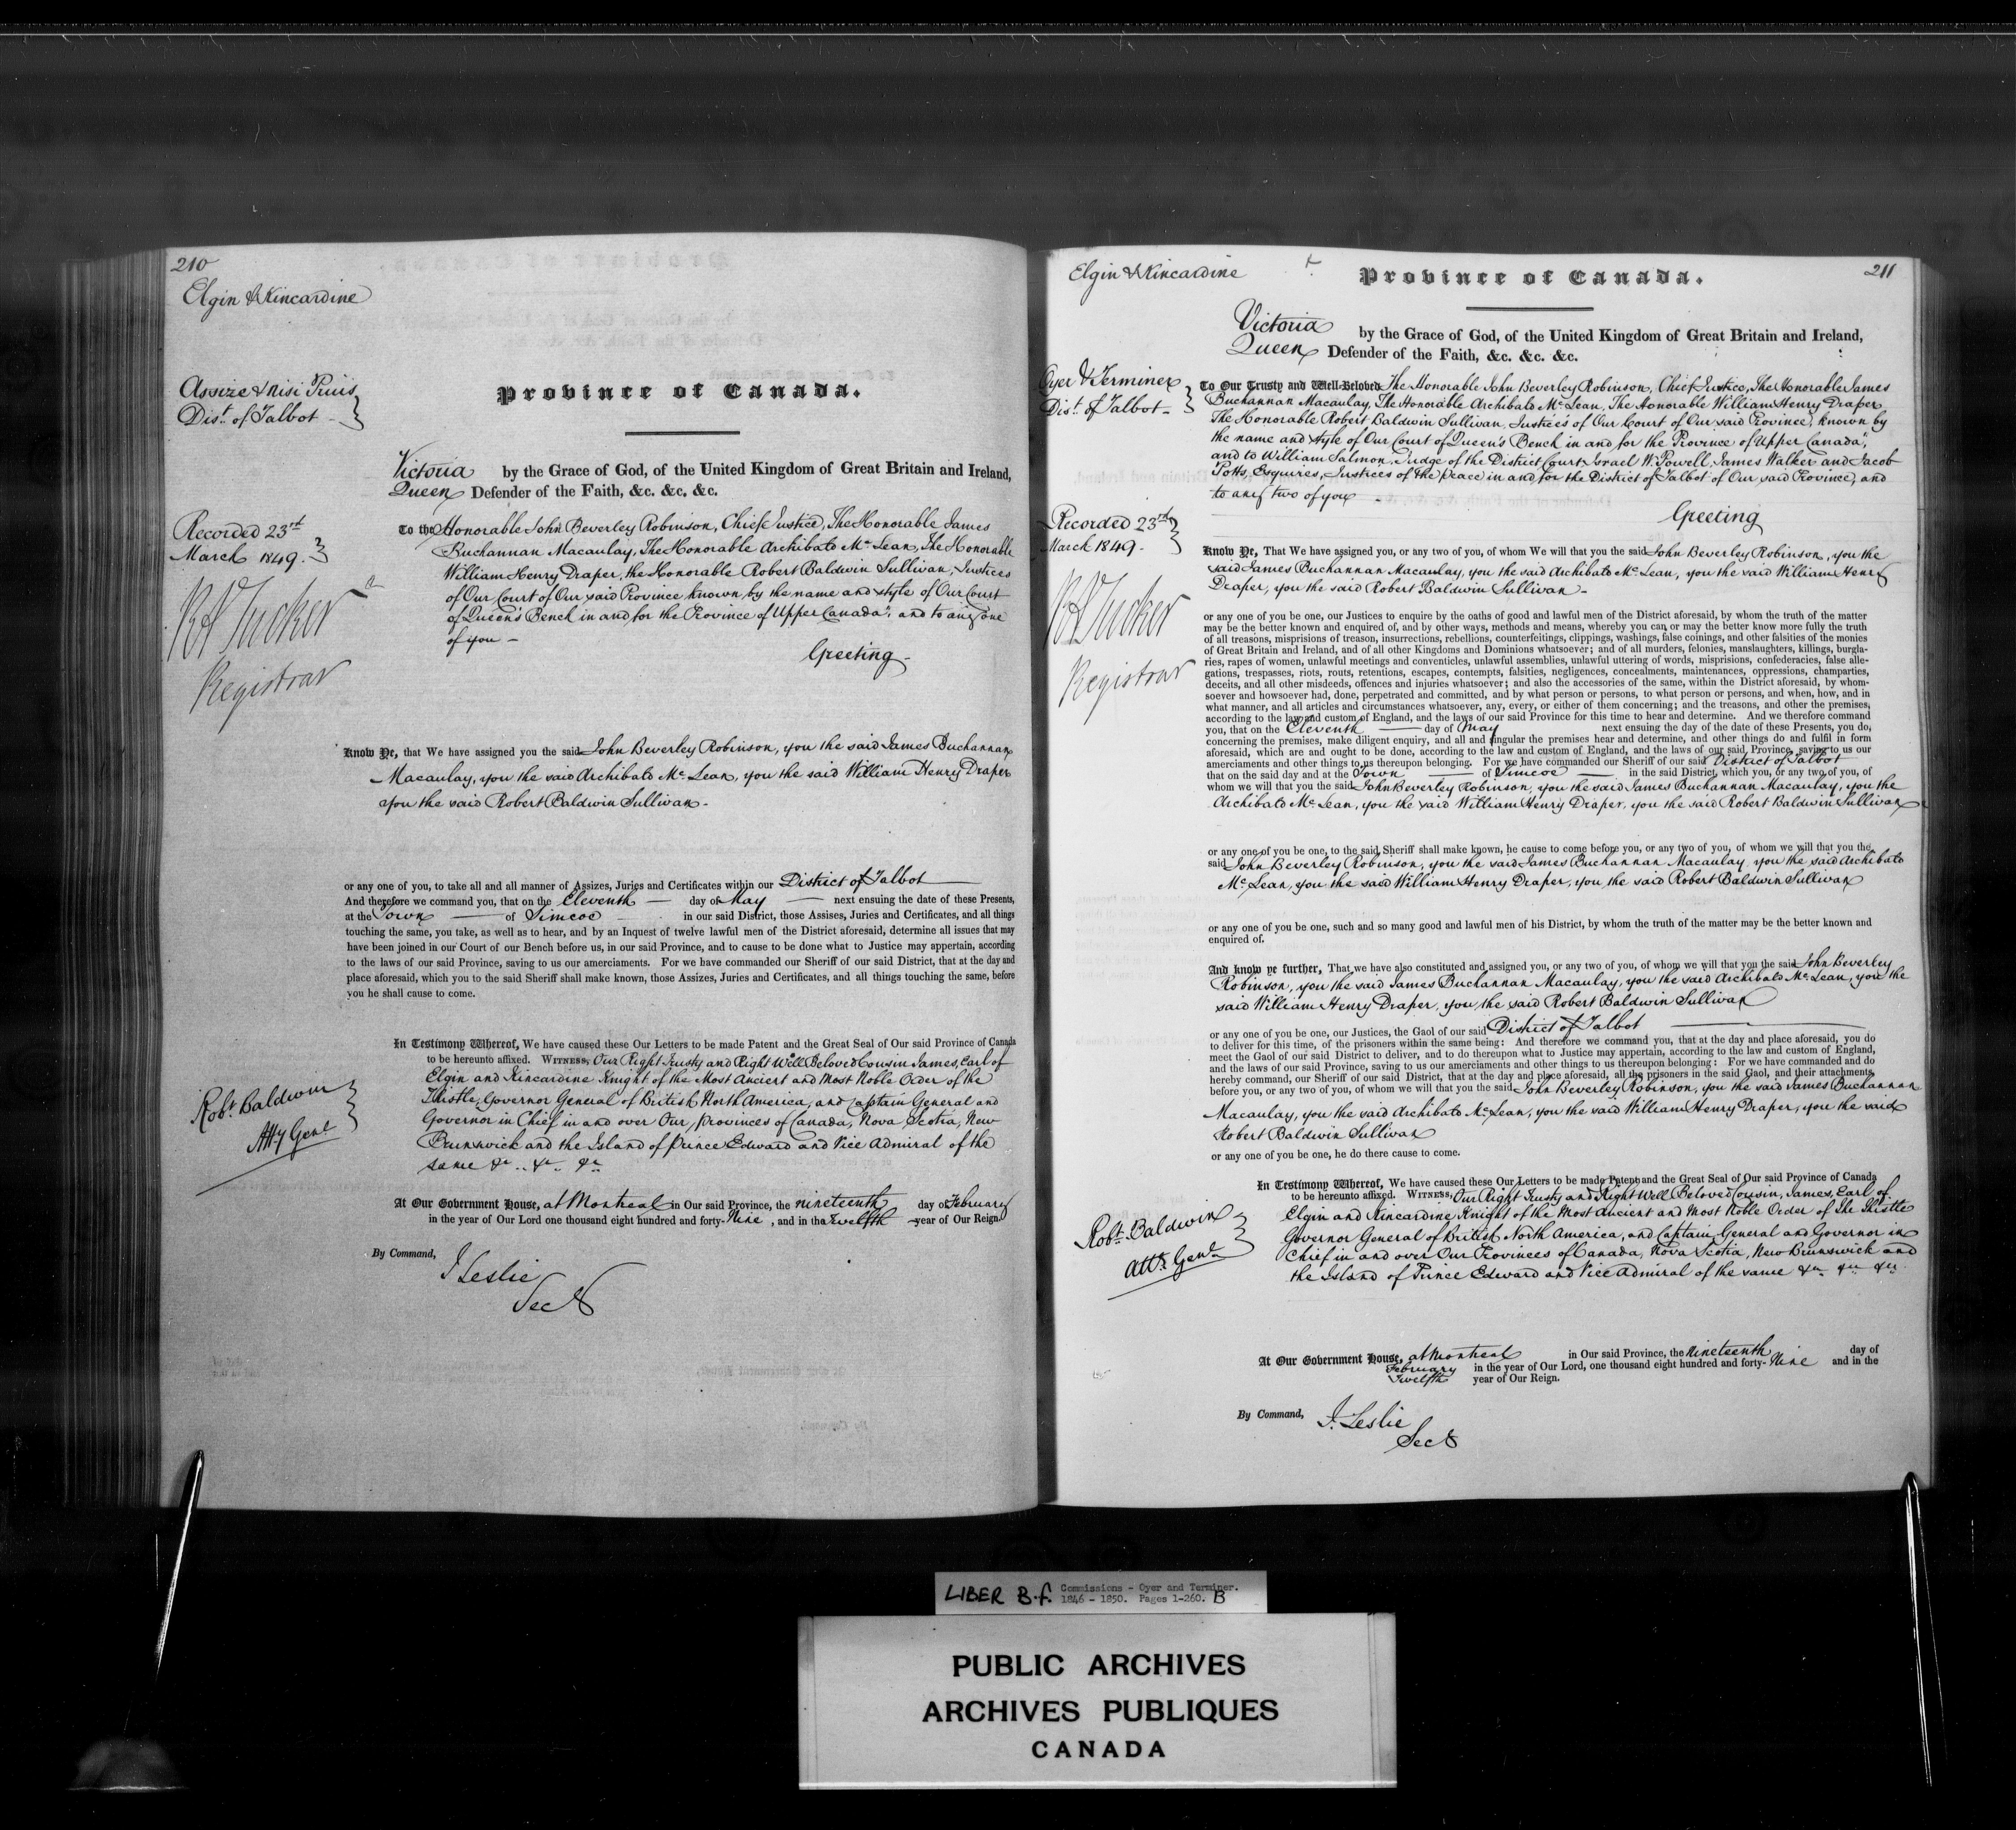 210
Elgin & Kincardine
Assize & Nisi Prius
Dist. of Talbot -
Province of Canada.
Victoria by the Grace of God, of the United Kingdom of Great Britain and Ireland,
Queen Defender of the Faith, &c. &c. &c.
Recorded 23rd
March 1849.
R A Tucker
Registrar
To the Honorable John Beverley Robinson, Chief Justice, The Honorable James
Buchannan Macaulay, The Honorable Archibald Mc Lean, The Honorable
William Henry Draper, the Honorable Robert Baldwin Sullivan, Justices
of Our Court of Our said Province known by the name and style of Our Court
of Queen's Bench in and for the Province of Upper Canada", and to any one
of you -
Greeting -
Know Ye, that We have assigned you the said John Beverley Robinson, you the said James Buchannan
Macaulay, you the said Archibald Mc Lean, you the said William Henry Draper
you the said Robert Baldwin Sullivan -
or any one of you, to take all and all manner of Assizes, Juries and Certificates within our District of Talbot
And therefore we command you, that on the Eleventh day of May next ensuing the date of these Presents,
at the Town of Simcoe in our said District, those Assises, Juries and Certificates, and all things
touching the same, you take, as well as to hear, and by an Inquest of twelve lawful men of the District aforesaid, determine all issues that may
have been joined in our Court of our Bench before us, in our said Province, and to cause to be done what to Justice may appertain, according
to the laws of our said Province, saving to us our amerciaments. For we have commanded our Sheriff of our said District, that at the day and
place aforesaid, which you to the said Sheriff shall make known, those Assizes, Juries and Certificates, and all things touching the same, before
you he shall cause to come.
In Testimony Whereof, We have caused these Our Letters to be made Patent and the Great Seal of Our said Province of Canada
to be hereunto affixed. WITNESS, Our Right Trusty and Right Well Beloved Cousin James, Earl of
Elgin and Kincardine Knight of the Most Ancient and Most Noble Order of the
Thistle, Governor General of British North America, and Captain General and
Governor in Chief in and over Our Provinces of Canada, Nova Scotia, New
Brunswick and the Island of Prince Edward and Vice Admiral of the
same &c. &c. &c.
Robt. Baldwin
Atty Genl.
At Our Government House, at Montreal in Our said Province, the nineteenth day of February
in the year of Our Lord one thousand eight hundred and forty-Nine, and in the Twelfth year of Our Reign.
By Command,
J. Leslie
Secy
Elgin & Kincardine
Province of Canada.
211
Victoria by the Grace of God, of the United Kingdom of Great Britain and Ireland,
Queen Defender of the Faith, &c. &c. &c.
Oyer & Terminer
Dist. of Talbot -
To Our Trusty and Well-Beloved The Honorable John Beverley Robinson, Chief Justice, The Honorable James
Buchannan Macaulay, The Honorable Archibald Mc Lean, The Honorable William Henry Draper
The Honorable Robert Baldwin Sullivan, Justices of Our Court of Our said Province, known by
the name and style of Our Court of Queen's Bench in and for the Province of Upper Canada",
and to William Salmon, Judge of the District Court, Israel W. Powell, James Walker and Jacob
Potts, Esquires, Justices of the peace in and for the District of Talbot of Our said Province, and
to any two of you -
Greeting
Recorded 23rd
March 1849.
R A Tucker
Registrar
Know Ye, That We have assigned you, or any two of you, of whom We will that you the said John Beverley Robinson, you the
said James Buchannan Macaulay, you the said Archibald Mc Lean, you the said William Henry
Draper, you the said Robert Baldwin Sullivan -
or any one of you be one, our Justices to enquire by the oaths of good and lawful men of the District aforesaid, by whom the truth of the matter
may be the better known and enquired of, and by other ways, methods and means, whereby you can or may the better know more fully the truth
of all treasons, misprisions of treason, insurrections, rebellions, counterfeitings, clippings, washings, false coinings, and other falsities of the monies
of Great Britain and Ireland, and of all other Kingdoms and Dominions whatsoever; and of all murders, felonies, manslaughters, killings, burgla-
ries, rapes of women, unlawful meetings and conventicles, unlawful assemblies, unlawful uttering of words, misprisions, confederacies, false alle-
gations, trespasses, riots, routs, retentions, escapes, contempts, falsities, negligences, concealments, maintenances, oppressions, champarties,
deceits, and all other misdeeds, offences and injuries whatsoever; and also the accessories of the same, within the District aforesaid, by whom-
soever and howsoever had, done, perpetrated and committed, and by what person or persons, to what person or persons, and when, how, and in
what manner, and all articles and circumstances whatsoever, any, every, or either of them concerning; and the treasons, and other the premises,
according to the law and custom of England, and the laws of our said Province for this time to hear and determine. And we therefore command
you, that on the Eleventh day of May next ensuing the day of the date of these Presents, you do,
concerning the premises, make diligent enquiry, and all and singular the premises hear and determine, and other things do and fulfil in form
aforesaid, which are and ought to be done, according to the law and custom of England, and the laws of our said Province, saving to us our
amerciaments and other things to us thereupon belonging. For we have commanded our Sheriff of our said District of Talbot
that on the said day and at the Town of Simcoe in the said District, which you, or any two of you, of
whom we will that you the said John Beverley Robinson, you the said James Buchannan Macaulay, you the
Archibald Mc Lean, you the said William Henry Draper, you the said Robert Baldwin Sullivan
or any one of you be one, to the said Sheriff shall make known, he cause to come before you, or any two of you, of whom we will that you the
said John Beverley Robinson, you the said James Buchannan Macaulay, you the said Archibald
Mc Lean, you the said William Henry Draper, you the said Robert Baldwin Sullivan
or any one of you be one, such and so many good and lawful men of his District, by whom the truth of the matter may be the better known and
enquired of.
And know ye further, That we have also constituted and assigned you, or any two of you, of whom we will that you the said John Beverley
Robinson, you the said James Buchannan Macaulay, you the said Archibald Mc Lean, you the
said William Henry Draper, you the said Robert Baldwin Sullivan
or any one of you be one, our Justices, the Gaol of our said District of Talbot
to deliver for this time, of the prisoners within the same being: And therefore we command you, that at the day and place aforesaid, you do
meet the Gaol of our said District to deliver, and to do thereupon what to Justice may appertain, according to the law and custom of England,
and the laws of our said Province, saving to us our amerciaments and other things to us thereupon belonging: For we have commanded and do
hereby command, our Sheriff of our said District, that at the day and place aforesaid, all the prisoners in the said Gaol, and their attachments,
before you, or any two of you, of whom we will that you the said John Beverley Robinson, you the said James Buchannan
Macaulay, you the said Archibald Mc Lean, you the said William Henry Draper, you the said
Robert Baldwin Sullivan
or any one of you be one, he do there cause to come.
In Testimony Whereof, We have caused these Our Letters to be made Patent and the Great Seal of Our said Province of Canada
to be hereunto affixed. WITNESS, Our Right Trusty and Right Well Beloved Cousin, James, Earl of
Elgin and Kincardine Knight of the Most Ancient and Most Noble Order of the Thistle
Governor General of British North America, and Captain General and Governor in
Chief in and over Our Provinces of Canada, Nova Scotia, New Brunswick and
the Island of Prince Edward and Vice Admiral of the same &c &c &c.
Robt. Baldwin
Atty. Genl.
At Our Government House, at Montreal in Our said Province, the Nineteenth day of
February in the year of Our Lord, one thousand eight hundred and forty-Nine and in the
Twelfth year of Our Reign.
By Command,
J. Leslie
Secy
LIBER B.f. Commissions - Oyer and Terminer.
1846 - 1850. Pages 1-260. B
PUBLIC ARCHIVES
ARCHIVES PUBLIQUES
CANADA